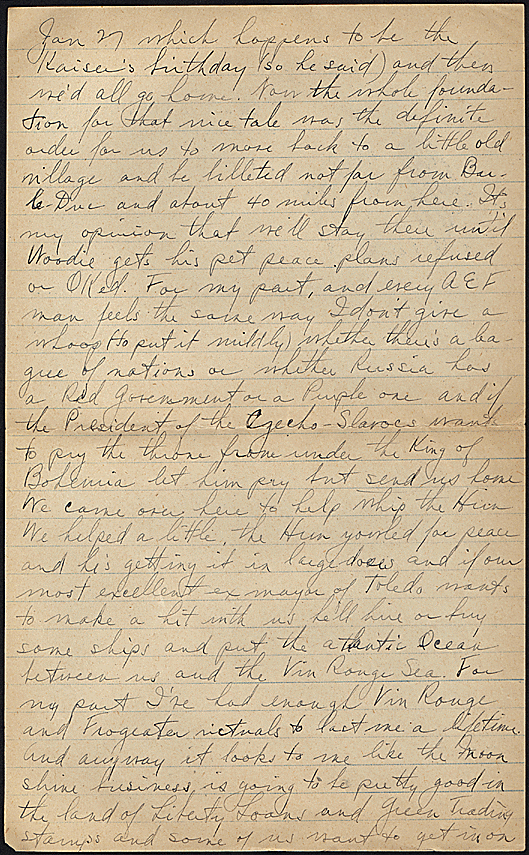 Jan 27 which happens to be the
Kaiser's birthday (so he said) and then
we'd all go home. Now the whole founda-
tion for that nice tale was the definite
order for us to move back to a little old
village and be billeted not far from Bar-
le-Duc and about 40 miles from here. It's
my opinion that we'll stay there until
Woodie gets his pet peace plans refused
or OKed. For my part, and every A E F
man feels the same way I don't give a
whoop (to put it mildly) whether there's a lea-
gue of nations or whether Russia has
a Red Government or a Purple one and if
the President of the Czecho-Slavocs wants
to pry the throne from under the King of
Bohemia let him pry but send us home
We came over here to help whip the Hun
We helped a little, the Hun yowled for peace
and he's getting it in large doses and if our
most excellent ex mayor of Toledo wants
to make a hit with us he'll hire or buy
some ships and put the atlantic Ocean
between us and the Vin Rouge Sea. For
my part I've had enough Vin Rouge
and Frogeater victuals to last me a lifetime.
And anyway it looks to me like the moon
shine business, is going to be pretty good in
the land of Liberty Loans and Green Trading
stamps and some of us want to get in on